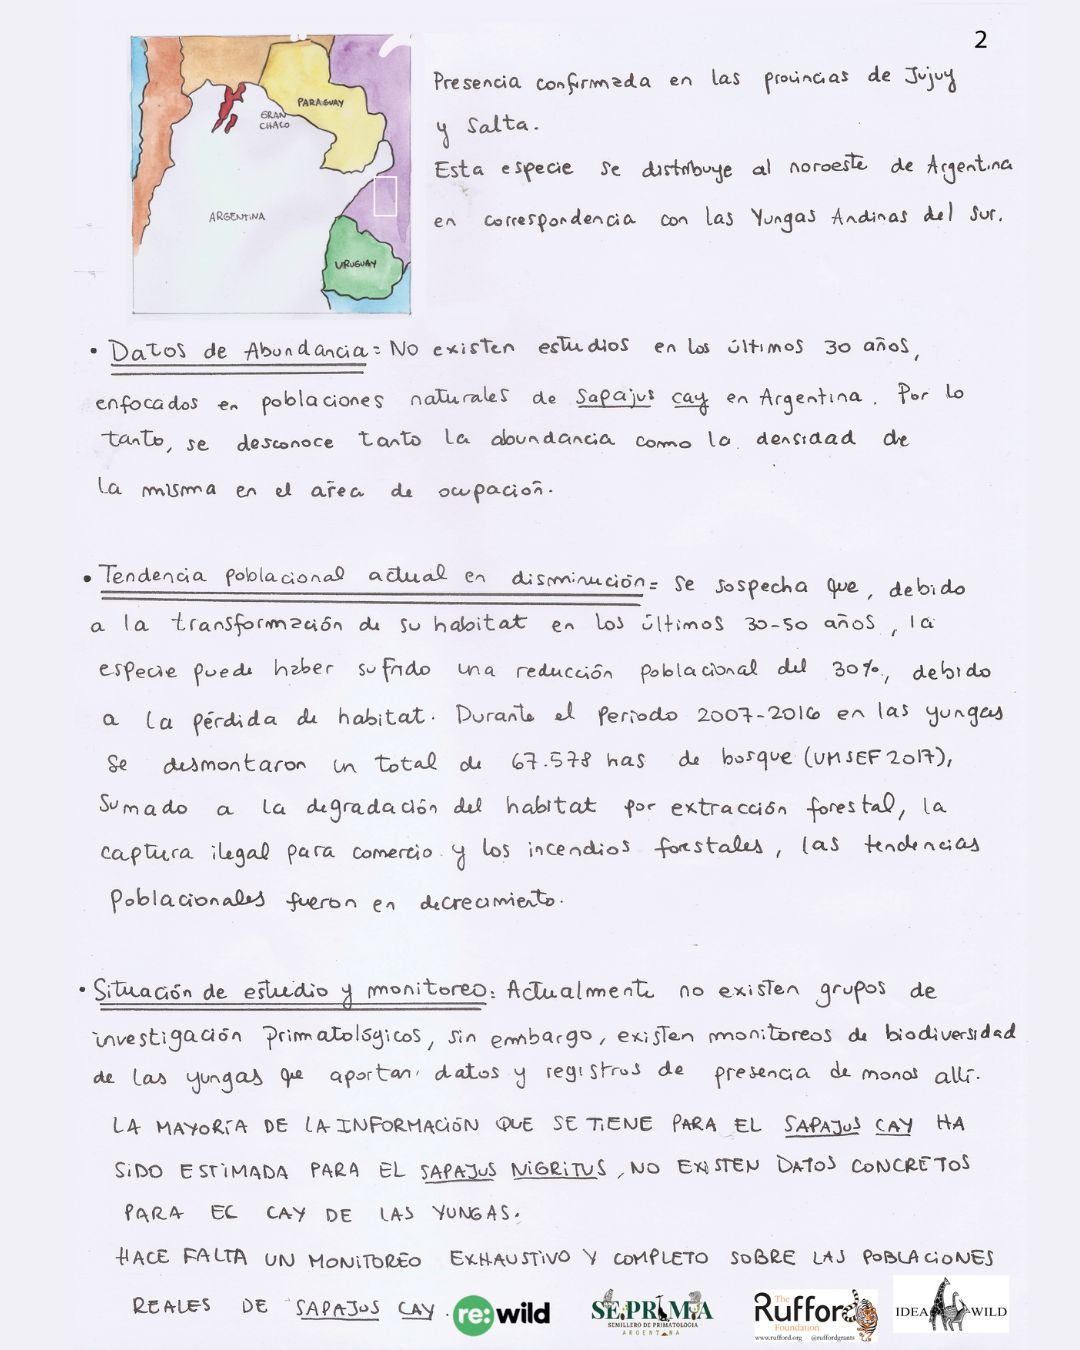 2
PARAGUAY
GRAN
CHACO
ARGENTINA
URUGUAY
Presencia confirmada en las provincias de Jujuy
y Salta.
Esta especie se distribuye al noroeste de Argentina
en correspondencia con las Yungas Andinas del Sur.
• Datos de Abundancia: No existen estudios en los últimos 30 años,
enfocados en poblaciones naturales de Sapajus cay en Argentina. Por lo
tanto, se desconoce tanto la abundancia como la densidad de
la misma en el área de ocupación.
• Tendencia poblacional actual en disminución: Se sospecha que, debido
a la transformación de su habitat en los últimos 30-50 años, la
especie puede haber sufrido una reducción poblacional del 30%, debido
a la pérdida de habitat. Durante el periodo 2007-2016 en las yungas
se desmontaron un total de 67.578 has de bosque (UMSEF 2017),
Sumado a la degradación del habitat por extracción forestal, la
captura ilegal para comercio y los incendios forestales, las tendencias
poblacionales fueron en decrecimiento.
• Situación de estudio y monitoreo: Actualmente no existen grupos de
investigación primatológicos, sin embargo, existen monitoreos de biodiversidad
de las yungas que aportan datos y registros de presencia de monos allí.
LA MAYORÍA DE LA INFORMACIÓN QUE SE TIENE PARA EL SAPAJUS CAY HA
SIDO ESTIMADA PARA EL SAPAJUS NIGRITUS, NO EXISTEN DATOS CONCRETOS
PARA EL CAY DE LAS YUNGAS.
HACE FALTA UN MONITOREO EXHAUSTIVO Y COMPLETO SOBRE LAS POBLACIONES
REALES DE SAPAJUS CAY.
re:wild
SEPRIMA
SEMILLERO DE PRIMATOLOGIA
ARGENTINA
The
Rufford
Foundation
www.rufford.org @ruffordgrants
IDEA WILD